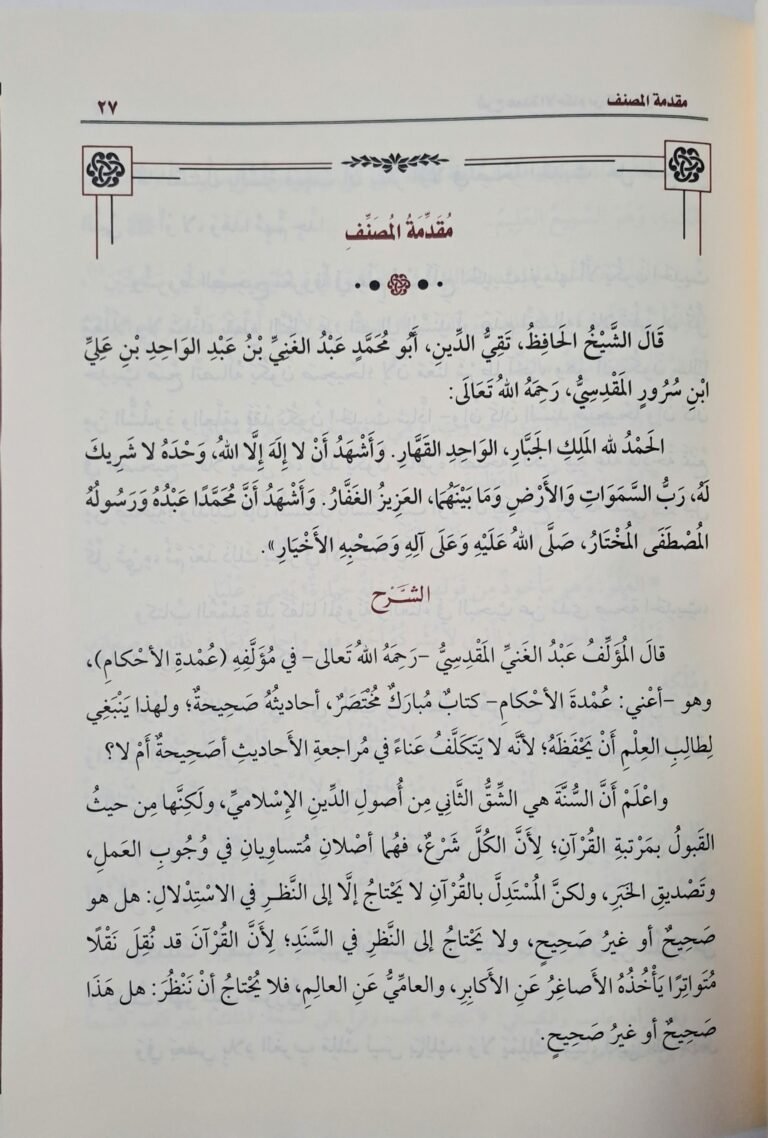 مقدمة المصنف
٢٧
مُقَدِّمَةُ المُصَنِّفِ
قَالَ الشَّيْخُ الحَافِظُ، تَقِيُّ الدِّينِ، أَبُو مُحَمَّدٍ عَبْدُ الغَنِيِّ بْنُ عَبْدِ الوَاحِدِ بْنِ عَلِيِّ
ابْنِ سُرُورٍ المَقْدِسِيُّ، رَحِمَهُ اللهُ تَعَالَى:
الحَمْدُ لله المَلِكِ الجَبَّارِ، الوَاحِدِ القَهَّارِ. وَأَشْهَدُ أَنْ لا إِلَهَ إِلَّا اللهُ، وَحْدَهُ لا شَرِيكَ
لَهُ، رَبُّ السَّمَوَاتِ وَالأَرْضِ وَمَا بَيْنَهُمَا، العَزِيزُ الغَفَّارُ. وَأَشْهَدُ أَنَّ مُحَمَّدًا عَبْدُهُ وَرَسُولُهُ
المُصْطَفَى المُخْتَارُ، صَلَّى اللهُ عَلَيْهِ وَعَلَى آلِهِ وَصَحْبِهِ الأَخْيَارِ».
الشَّرْح
قالَ المُؤَلِّفُ عَبْدُ الغَنيِّ المَقْدِسِيُّ –رَحِمَهُ اللهُ تَعالى– في مُؤَلَّفِهِ (عُمْدةِ الأحْكامِ)،
وهو –أعْني: عُمْدةَ الأحْكامِ– كتابٌ مُبارَكٌ مُخْتَصَرٌ، أحاديثُهُ صَحِيحةٌ؛ ولهذا يَنْبَغِي
لِطالِبِ العِلْمِ أَنْ يَحْفَظَهُ؛ لأنَّه لا يَتَكَلَّفُ عَناءً في مُراجعةِ الأَحاديثِ أصَحِيحةٌ أَمْ لا؟
واعْلَمْ أَنَّ السُّنَّةَ هي الشِّقُّ الثَّاني مِن أُصولِ الدِّينِ الإِسْلاميِّ، ولَكِنَّها مِن حيثُ
القَبولُ بمَرْتبةِ القُرْآنِ؛ لِأَنَّ الكُلَّ شَرْعٌ، فهُما أصْلانِ مُتساوِيانِ في وُجُوبِ العَملِ،
وتَصْديقِ الخَبَرِ، ولكنَّ المُسْتَدِلَّ بالقُرْآنِ لا يَحْتاجُ إلَّا إلى النَّظَرِ في الاسْتِدْلالِ: هل هو
صَحِيحٌ أو غيرُ صَحِيحٍ، ولا يَحْتاجُ إلى النَّظَرِ في السَّنَدِ؛ لِأَنَّ القُرْآنَ قد نُقِلَ نَقْلًا
مُتَواتِرًا يَأْخُذُهُ الأَصاغِرُ عَنِ الأَكابِرِ، والعامِّيُّ عَنِ العالِمِ، فلا يُحْتاجُ أنْ نَنْظُرَ: هل هَذَا
صَحِيحٌ أو غيرُ صَحِيحٍ.